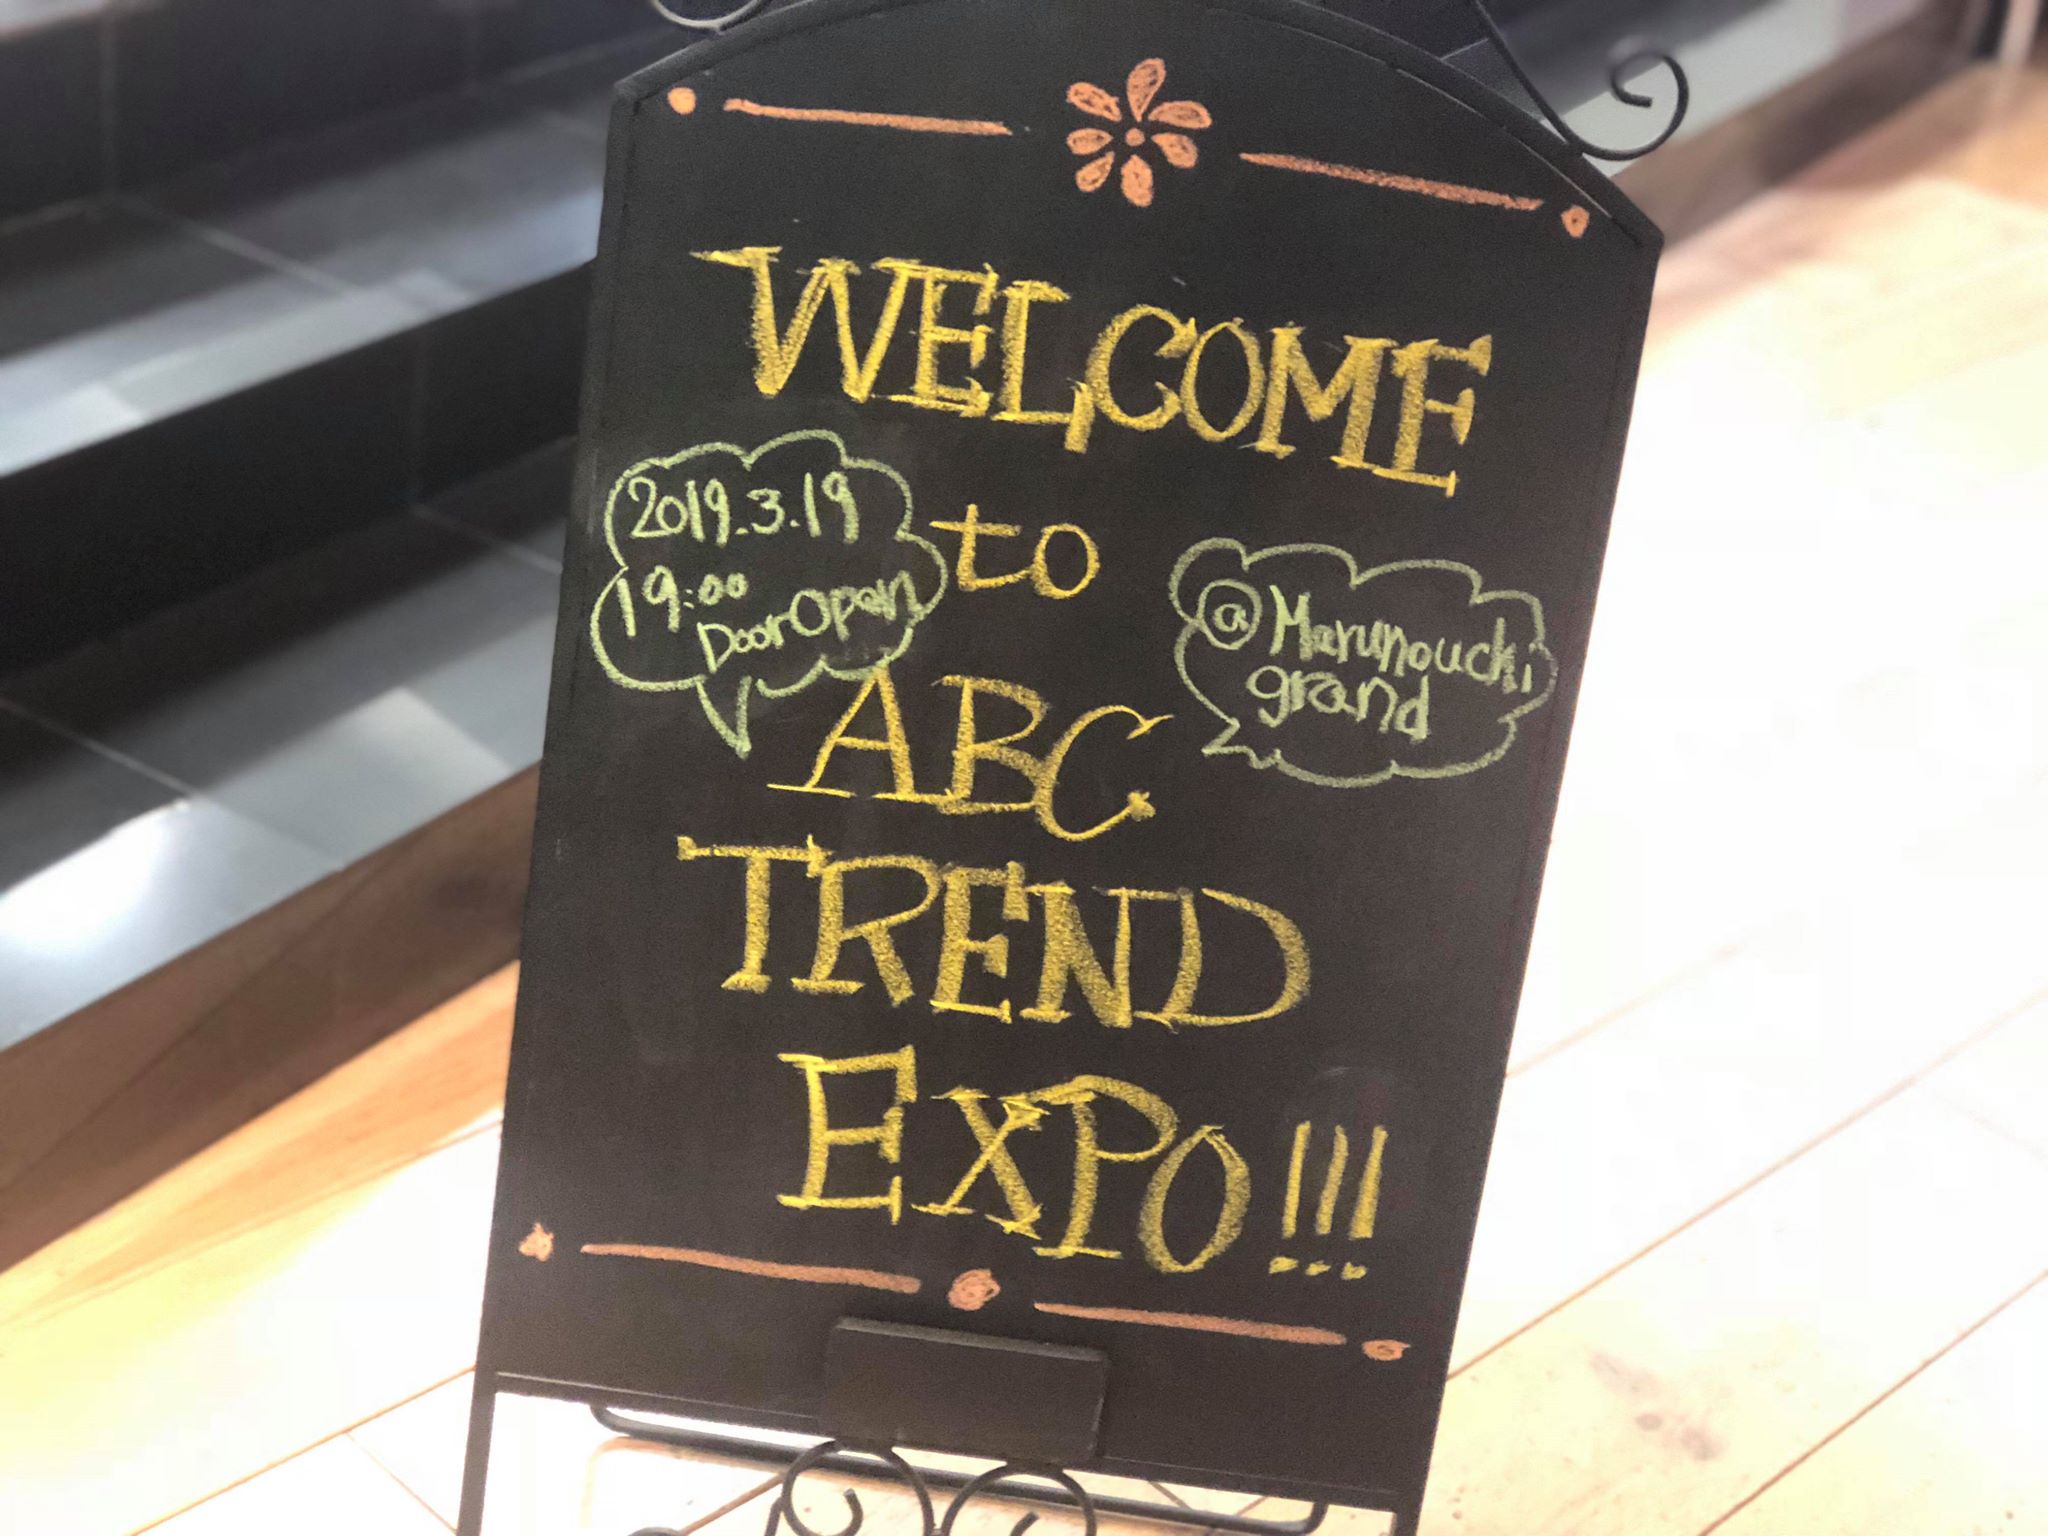 WELCOME
2019.3.19
19:00
Door Open
to
@Marunouchi
grand
ABC
TREND
EXPO!!!